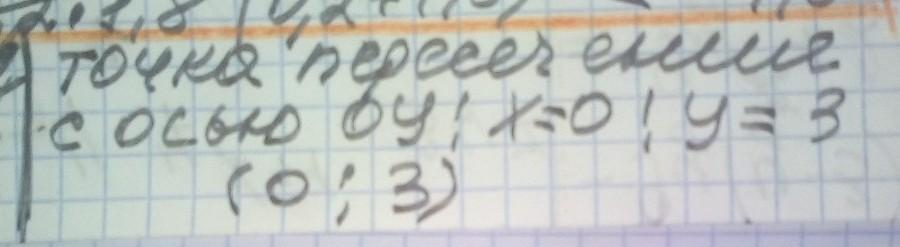 точка пересечения
с осью оу: x=0; y=3
(0; 3)